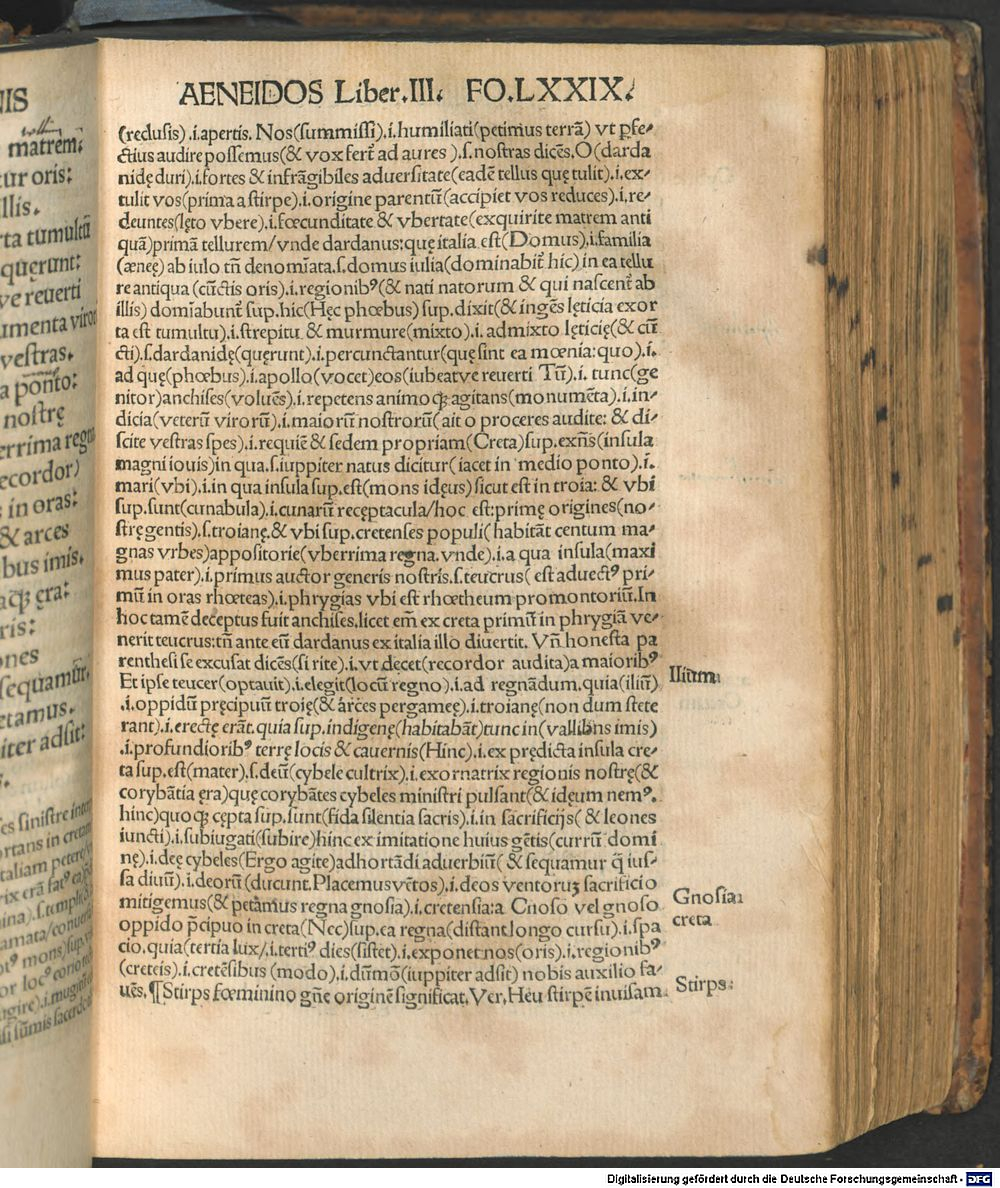 AENEIDOS Liber.III. FO.LXXIX.
(reclusis).i.apertis. Nos(summissi).i.humiliati(petimus terrā) vt ꝑfe-
ctius audire possemus(& vox fert̄ ad aures).s.nostras dicēs.O(darda
nidę duri).i.fortes & infrāgibiles aduersitate(eadē tellus quę tulit).i.ex-
tulit vos(prima a stirpe).i.origine parentū(accipiet vos reduces).i.re-
deuntes(lęto vbere).i.fœcunditate & vbertate(exquirite matrem anti
quā)primā tellurem/vnde dardanus:quę italia est(Domus).i.familia
(æneę) ab iulo tn̄ denomīata.s.domus iulia(dominabit̄ hic)in ea tellu
re antiqua (cūctis oris).i.regionibꝰ(& nati natorum & qui nascent̄ ab
illis) domīabunt̄ sup.hic(Hęc phœbus) sup.dixit(& ingēs lęticia exor
ta est tumultu).i.strepitu & murmure(mixto).i.admixto lęticię(& cū
cti).s.dardanidę(quęrunt).i.percunctantur(quę sint ea mœnia:quo).i.
ad quę(phœbus).i.apollo(vocet)eos(iubeatve reuerti Tū).i. tunc(ge
nitor)anchises(voluēs).i.repetens animo ꝙ agitans(monumēta).i.in-
dicia(veterū virorū).i.maiorū nostrorū(ait o proceres audite: & di-
scite vestras spes).i.requiē & sedem propriam(Creta)sup.exn̄s(insula
magni iouis)in qua.s.iuppiter natus dicitur(iacet in medio ponto).i.
mari(vbi).i.in qua insula sup.est(mons idęus)sicut est in troia: & vbi
sup.sunt(cunabula).i.cunarū recęptacula/hoc est:primę origines(no-
strę gentis).s.troianę.& vbi sup.cretenses populi(habitāt centum ma-
gnas vrbes)appositorie(vberrima regna.vnde).i.a qua insula(maxi
mus pater).i.primus auctor generis nostris.s.teucrus(est aduectꝰ pri-
mū in oras rhœteas).i.phrygias vbi est rhœtheum promontoriū.In
hoc tamē deceptus fuit anchises,licet em̄ ex creta primū in phrygiā ve-
nerit teucrus:tn̄ ante eū dardanus ex italia illo diuertit. Vn̄ honesta pa
renthesi se excusat dicēs(si rite).i.vt decet(recordor audita)a maioribꝰ
Et ipse teucer(optauit).i.elegit(locū regno).i.ad regnādum.quia(iliū)
.i.oppidū pręcipuū troię(& arces pergameę).i.troianę(non dum stete
rant).i.erectę erāt.quia sup.indigenę(habitabāt)tunc in(vallibus imis)
.i.profundioribꝰ terrę locis & cauernis(Hinc).i.ex prędicta insula cre-
ta sup.est(mater).s.deū(cybele cultrix).i.exornatrix regionis nostrę(&
corybātia ęra)quę corybātes cybeles ministri pulsant(& idęum nemꝰ.
hinc)quoqꝫ cępta sup.sunt(fida silentia sacris).i.in sacrificijs(& leones
iuncti).i.subiugati(subire)hinc ex imitatione huius gētis(currū domi
nę).i.deę cybeles(Ergo agite)adhortādi aduerbiū(& sequamur q̄ ius-
sa diuū).i.deorū(ducunt.Placemus vētos).i.deos ventoruꝫ sacrificio
mitigemus(& petāmus regna gnosia).i.cretensia:a Cnoso vel gnoso
oppido p̄cipuo in creta(Nec)sup.ea regna(distant longo cursu).i.spa
cio.quia(tertia lux/.i.tertiꝰ dies(sistet).i.exponet nos(oris).i.regionibꝰ
(creteis).i.cretēsibus (modo).i.dūmō(iuppiter adsit) nobis auxilio fa-
uēs.¶Stirps fœminino gn̄e originē significat.Ver.Heu stirpē inuisam.
Ilium.
Gnosia:
creta
Stirps:
NIS
matrem:
tur oris:
illis.
rta tumultū
quęrunt:
ve reuerti
umenta viro
vestras.
a ponto:
nostrę
errima regn
ecordor)
: in oras:
& arces
bus imis.
ęra:
ris:
ones
sequamur.
etamus.
iter adsit:
Digitalisierung gefördert durch die Deutsche Forschungsgemeinschaft - DFG